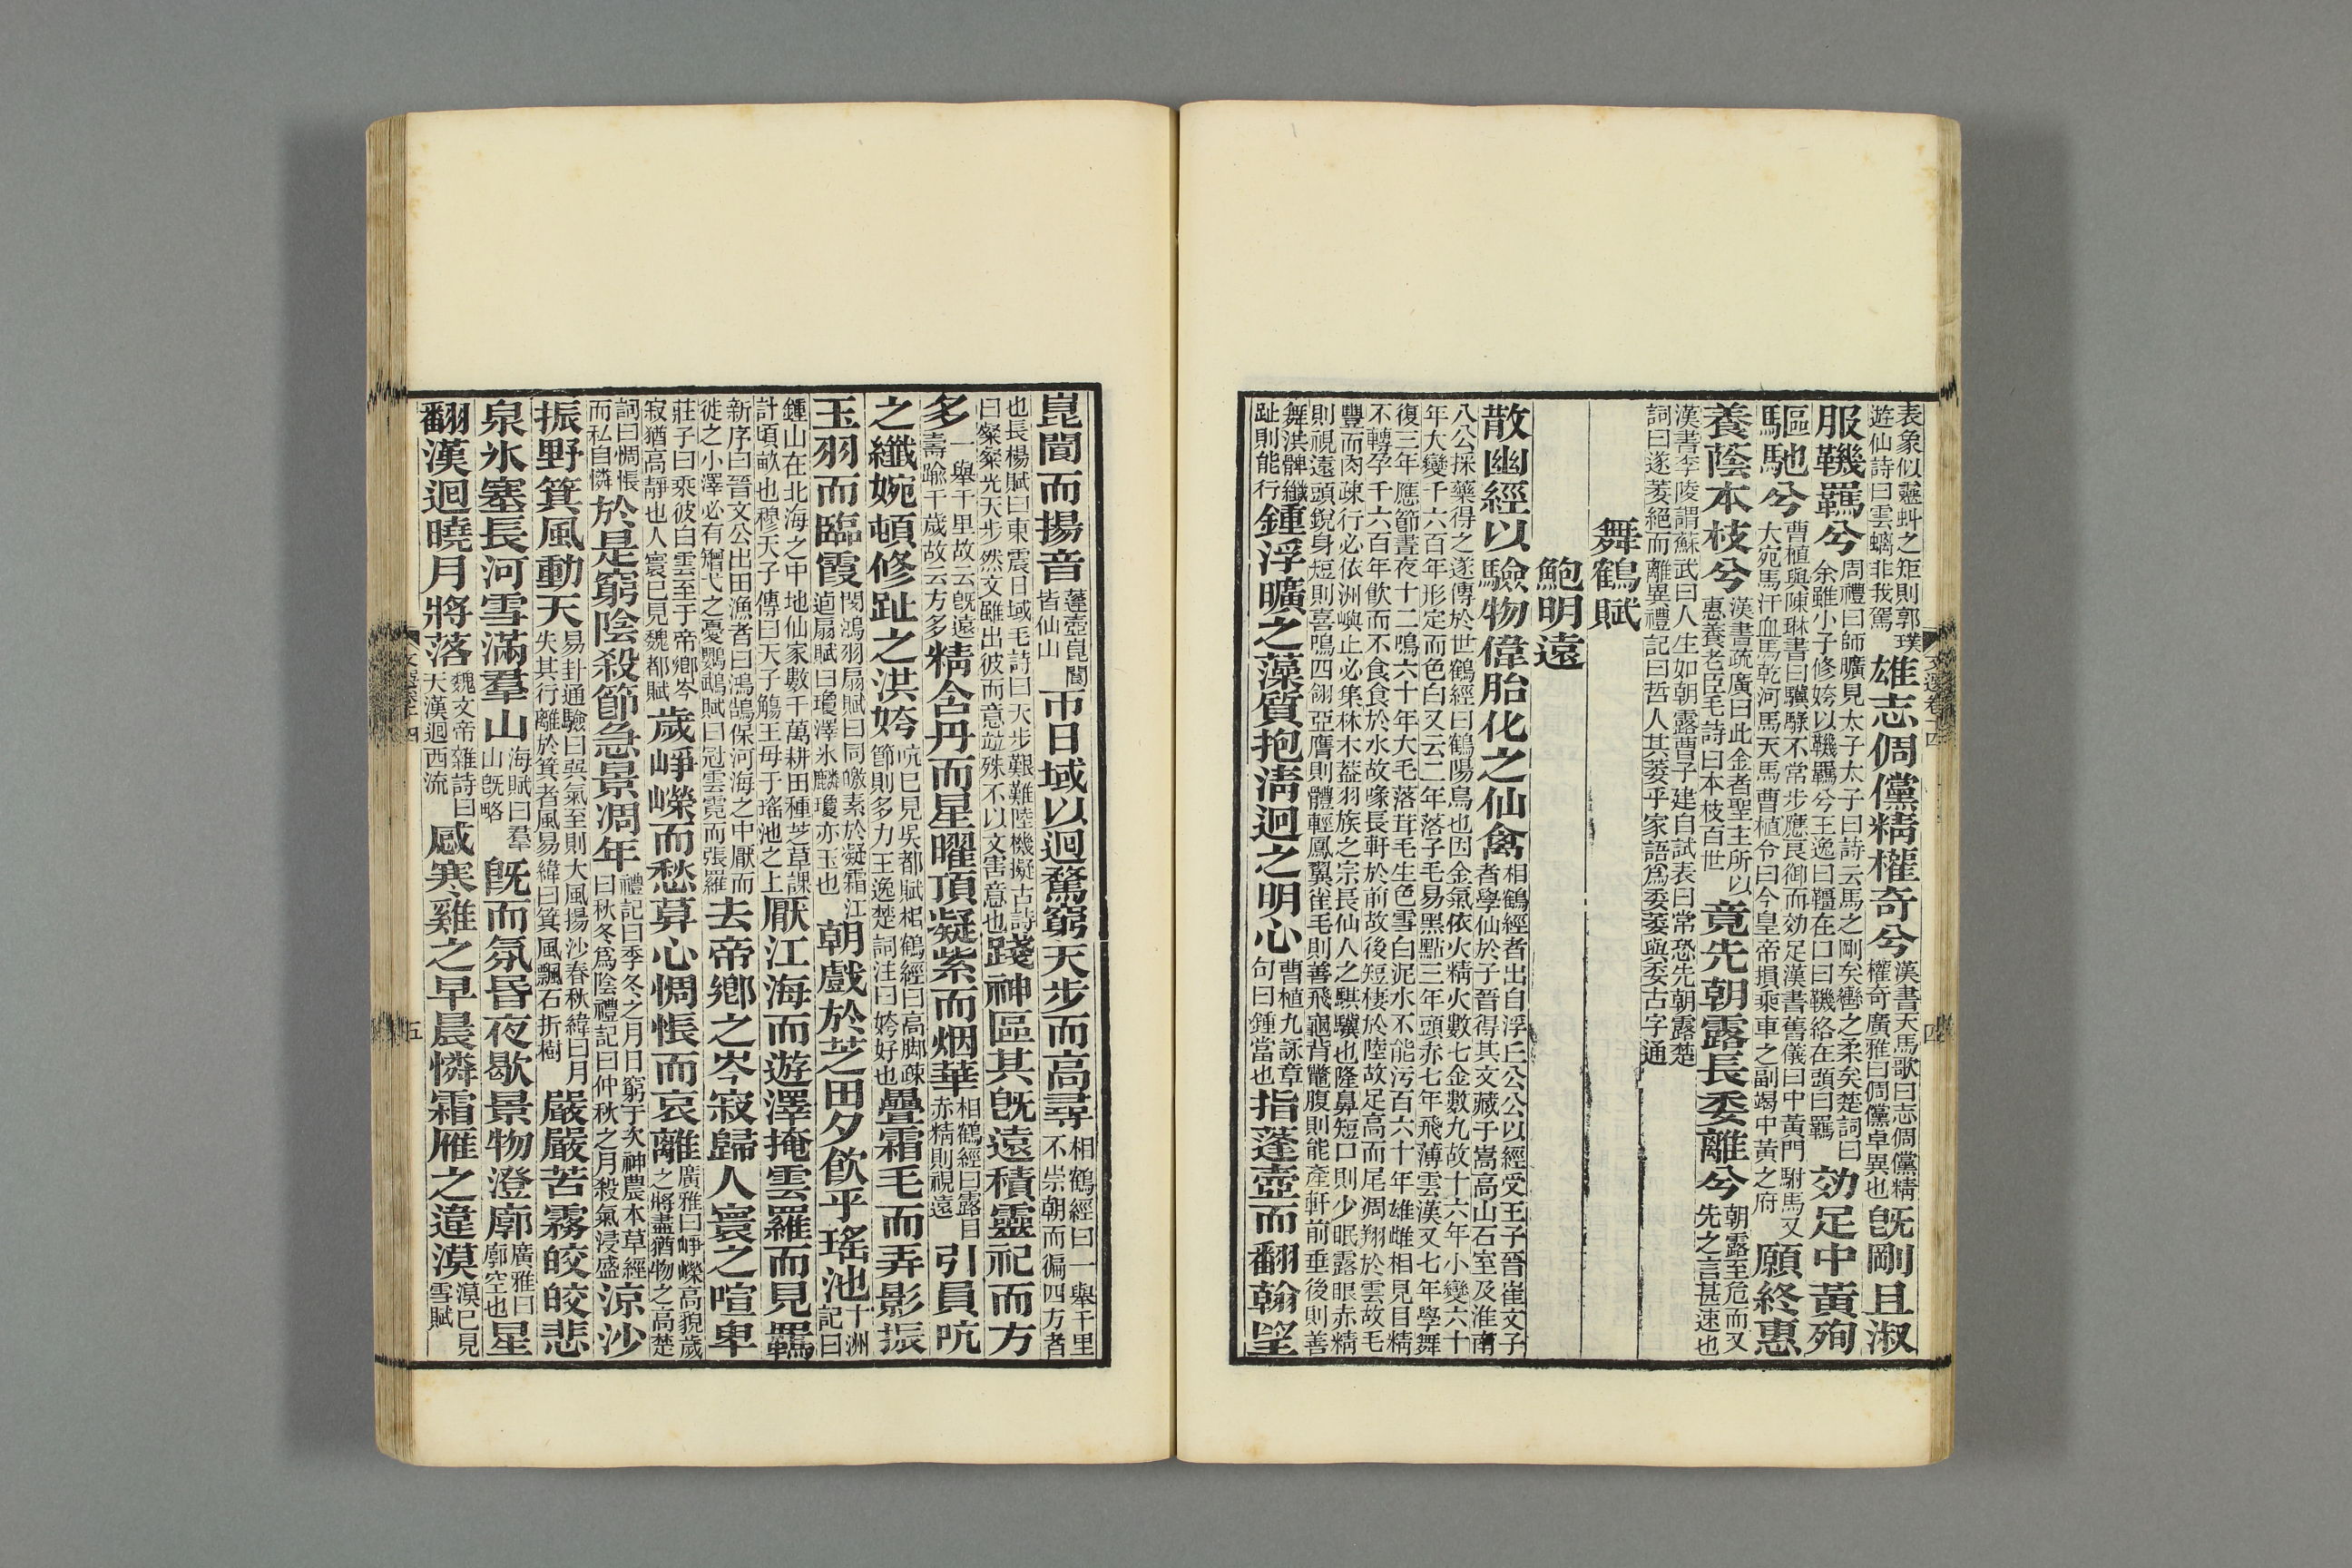 表象似靈虯之矩則郭璞
遊仙詩曰雲螭非我駕
雄志倜儻精權奇兮
漢書天馬歌曰志倜儻精
權奇廣雅曰倜儻卓異也
旣剛且淑
服鞿羈兮
周禮曰師曠見太子太子曰詩云馬之剛矣轡之柔矣楚詞曰
余雖小子修姱以鞿羈兮王逸曰韁在口曰鞿絡在頭曰羈
効足中黃殉
驅馳兮
曹植與陳琳書曰驥騄不常步應良御而効足漢書舊儀曰中黃門駙馬又
大宛馬汗血馬乾河馬天馬曹植令曰今皇帝損乘車之副竭中黃之府
願終惠
養蔭本枝兮
漢書疏廣曰此金者聖主所以
惠養老臣毛詩曰本枝百世
竟先朝露長委離兮
朝露至危而又
先之言甚速也
漢書李陵謂蘇武曰人生如朝露曹子建自試表曰常恐先朝露楚
詞曰遂萎絕而離異禮記曰哲人其萎乎家語爲委萎與委古字通
舞鶴賦
鮑明遠
散幽經以驗物偉胎化之仙禽
相鶴經者出自浮丘公公以經受王子晉崔文子
者學仙於子晉得其文藏于嵩高山石室及淮南
八公採藥得之遂傳於世鶴經曰鶴陽鳥也因金氣依火精火數七金數九故十六年小變六十
年大變千六百年形定而色白又云二年落子毛易黑點三年頭赤七年飛薄雲漢又七年學舞
復三年應節晝夜十二鳴六十年大毛落茸毛生色雪白泥水不能污百六十年雄雌相見目精
不轉孕千六百年飲而不食食於水故喙長軒於前故後短棲於陸故足高而尾凋翔於雲故毛
豐而肉疎行必依洲嶼止必集林木蓋羽族之宗長仙人之騏驥也隆鼻短口則少眠露眼赤精
則視遠頭銳身短則喜鳴四翎亞膺則體輕鳳翼雀毛則善飛龜背鼈腹則能產軒前垂後則善
舞洪髀纖
趾則能行
鍾浮曠之藻質抱淸迥之明心
曹植九詠章
句曰鍾當也
指蓬壺而翻翰望
崑閬而揚音
蓬壺崑閬
皆仙山
帀日域以迴騖窮天步而高尋
相鶴經曰一舉千里
不崇朝而徧四方者
也長楊賦曰東震日域毛詩曰天步艱難陸機擬古詩
曰粲粲光天步然文雖出彼而意竝殊不以文害意也
踐神區其旣遠積靈祀而方
多
一舉千里故云旣遠
壽踰千歲故云方多
精含丹而星曜頂凝紫而烟華
相鶴經曰露目
赤精則視遠
引員吭
之纖婉頓修趾之洪姱
吭已見吳都賦相鶴經曰高脚疎
節則多力王逸楚詞注曰姱好也
疊霜毛而弄影振
玉羽而臨霞
閔鴻羽扇賦曰同皦素於凝霜江
逌扇賦曰瓊澤氷麟瓊亦玉也
朝戲於芝田夕飮乎瑤池
十洲
記曰
鍾山在北海之中地仙家數千萬耕田種芝草課
計頃畝也穆天子傳曰天子觴王母于瑤池之上
厭江海而遊澤掩雲羅而見羈
新序曰晉文公出田漁者曰鴻鵠保河海之中厭而
徙之小澤必有矰弋之憂鸚鵡賦曰冠雲霓而張羅
去帝鄉之岑寂歸人寰之喧卑
莊子曰乘彼白雲至于帝鄉岑
寂猶高靜也人寰已見魏都賦
歲崢嶸而愁暮心惆悵而哀離
廣雅曰崢嶸高貌歲
之將盡猶物之高楚
詞曰惆悵
而私自憐
於是窮陰殺節急景凋年
禮記曰季冬之月日窮于次神農本草經
曰秋冬爲陰禮記曰仲秋之月殺氣浸盛
涼沙
振野箕風動天
易卦通驗曰巽氣至則大風揚沙春秋緯曰月
失其行離於箕者風易緯曰箕風飄石折樹
嚴嚴苦霧皎皎悲
泉氷塞長河雪滿羣山
海賦曰羣
山旣略
旣而氛昏夜歇景物澄廓
廣雅曰
廓空也
星
翻漢迴曉月將落
魏文帝雜詩曰
天漢迴西流
感寒雞之早晨憐霜雁之違漠
漠已見
雪賦
文選卷十四
四
文選卷十四
五